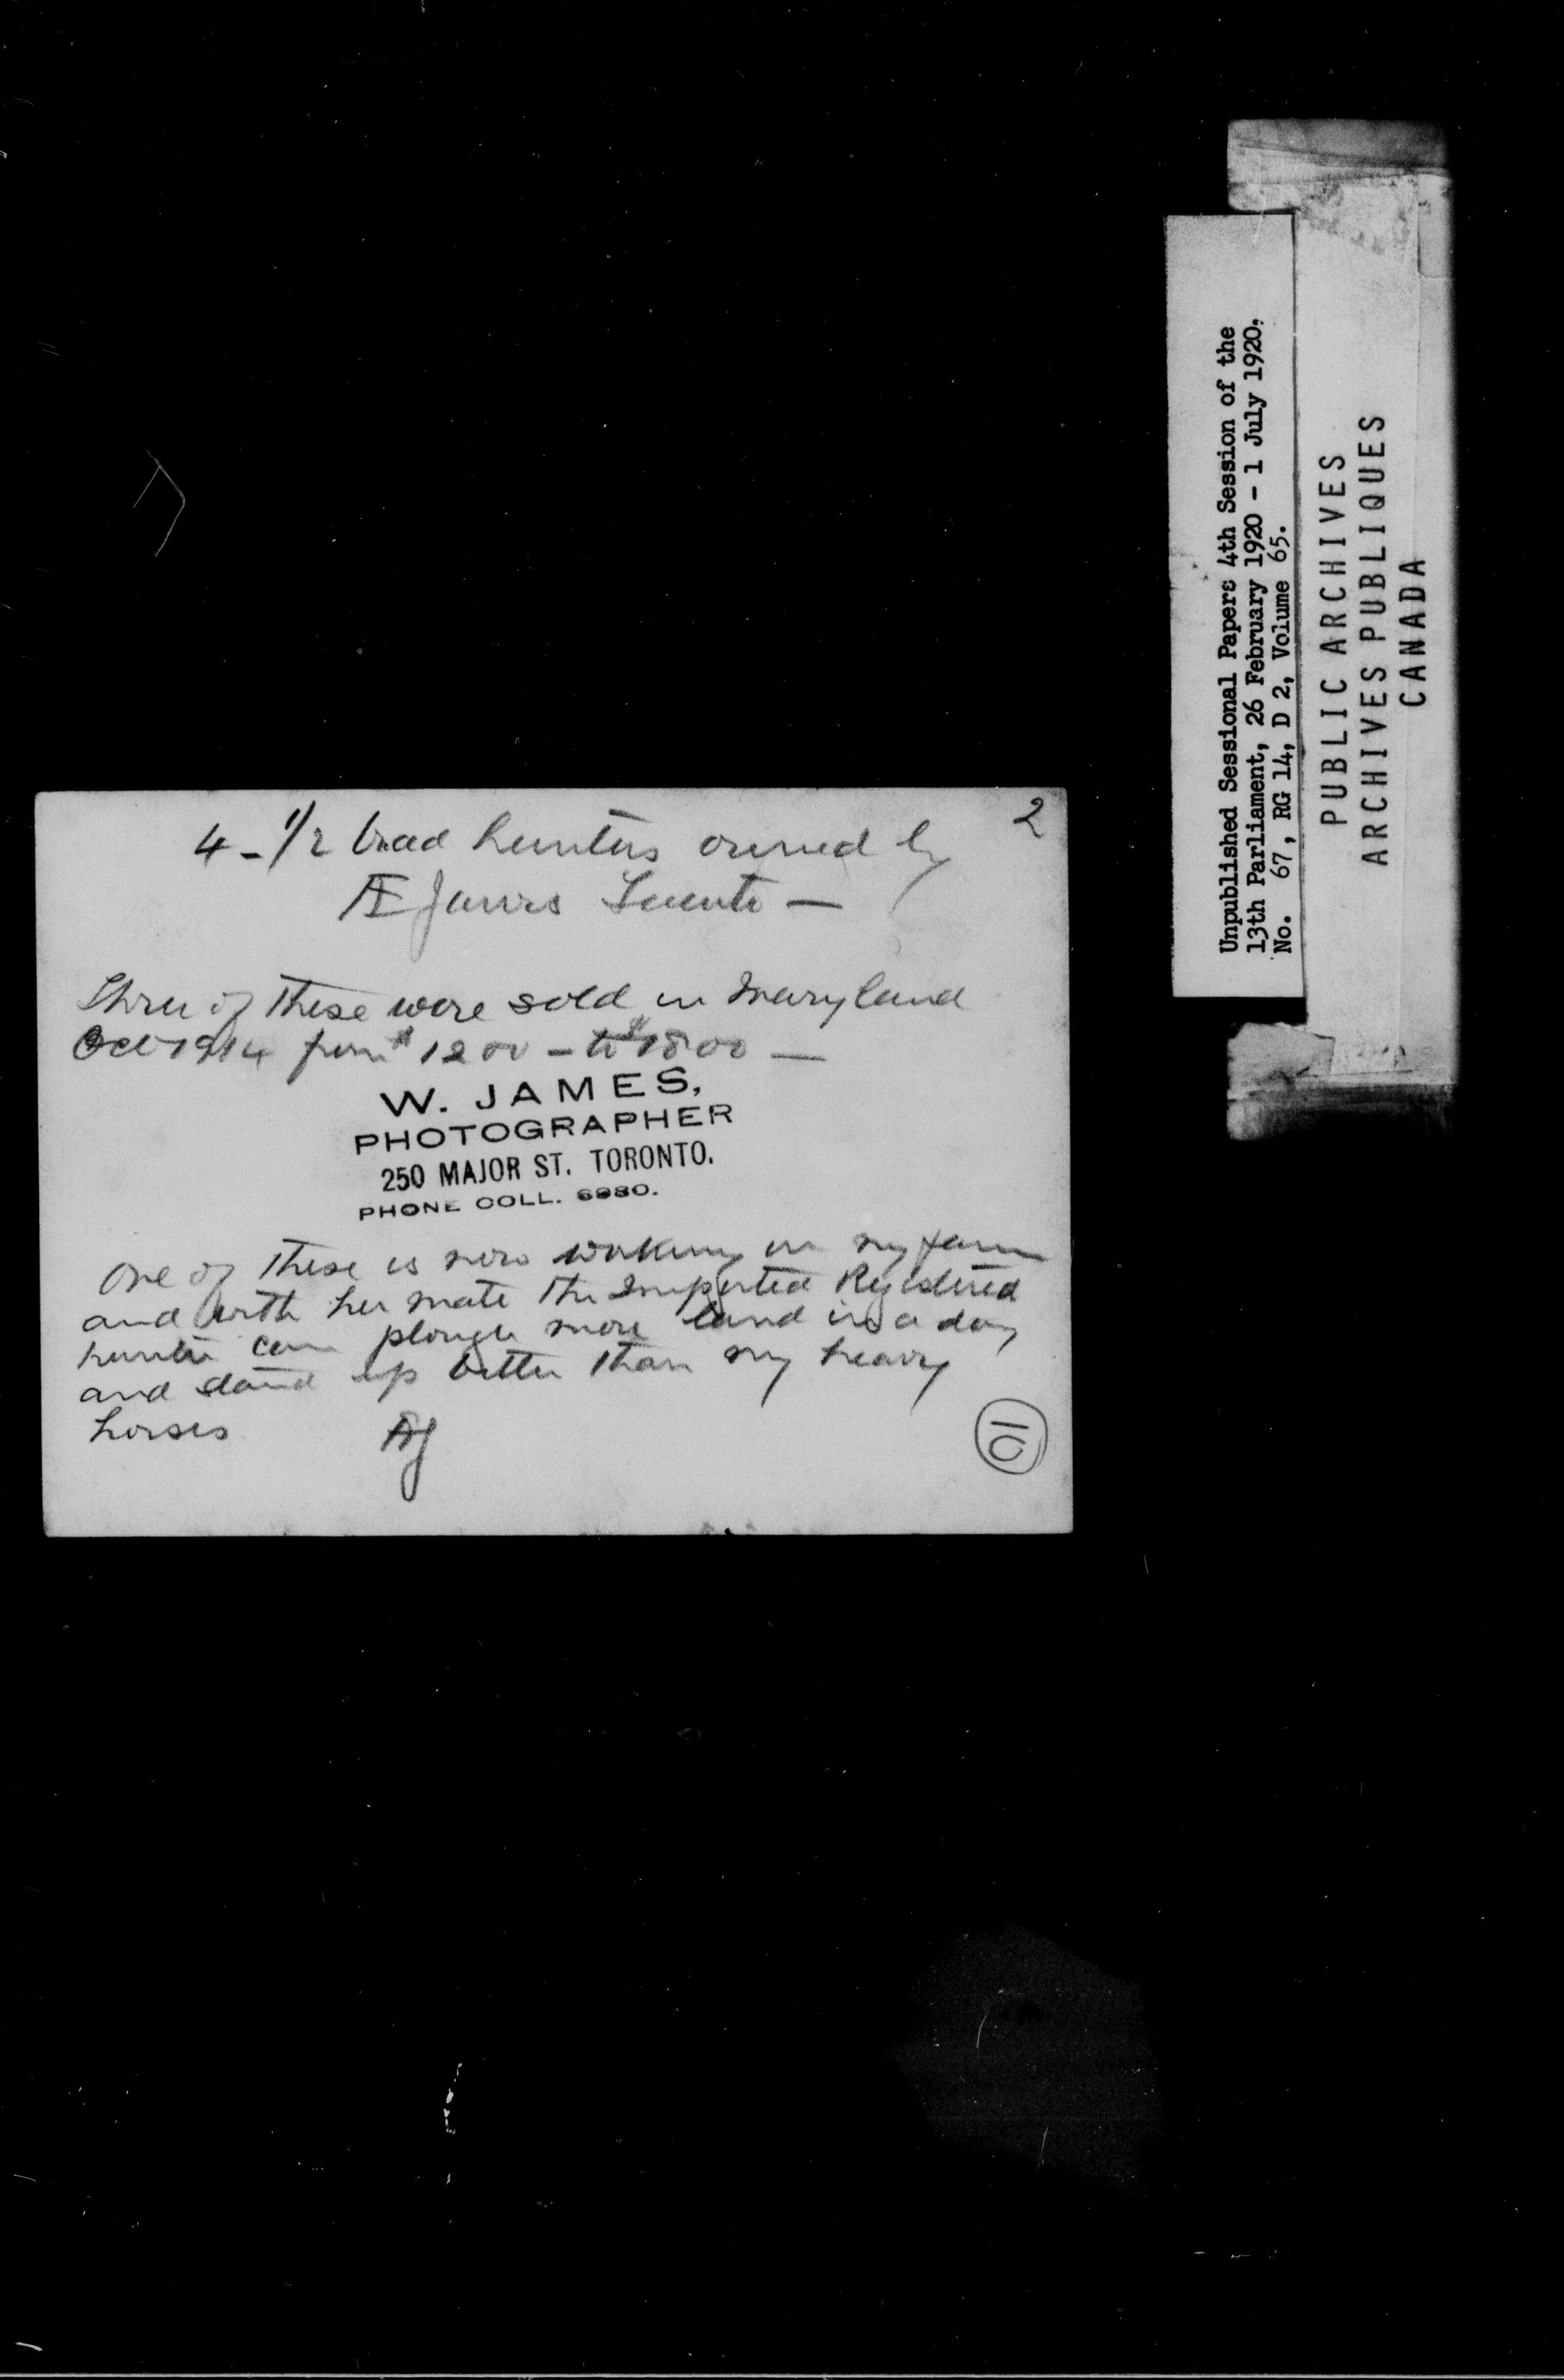 2
4 - 1/2 bred hunters owned by
Æ Jarvis Toronto —
Three of these were sold in Maryland
Oct 1914 from $1200 - to $1800 —
W. JAMES,
PHOTOGRAPHER
250 MAJOR ST. TORONTO.
PHONE COLL. 6980.
One of these is now working on my farm
and with her mate the Imported Registered
hunter can plough more land in a day
and stand up better than my heavy
horses
ÆJ
10
Unpublished Sessional Papers 4th Session of the
13th Parliament, 26 February 1920 - 1 July 1920,
No. 67, RG 14, D 2, Volume 65.
PUBLIC ARCHIVES
ARCHIVES PUBLIQUES
CANADA